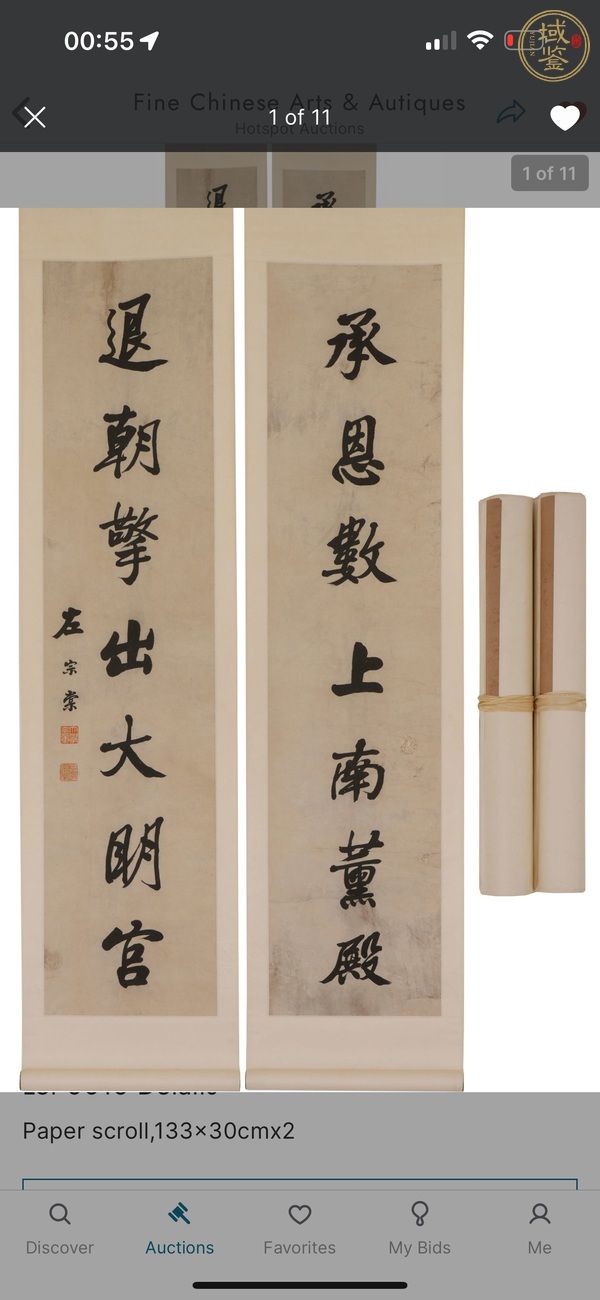 00:55
域鉴
Fine Chinese Arts & Autiques
1 of 11
Hotspot Auctions
1 of 11
退 承
承恩數上南薰殿
退朝擎出大明宫
左宗棠
Paper scroll,133×30cmx2
Discover
Auctions
Favorites
My Bids
Me